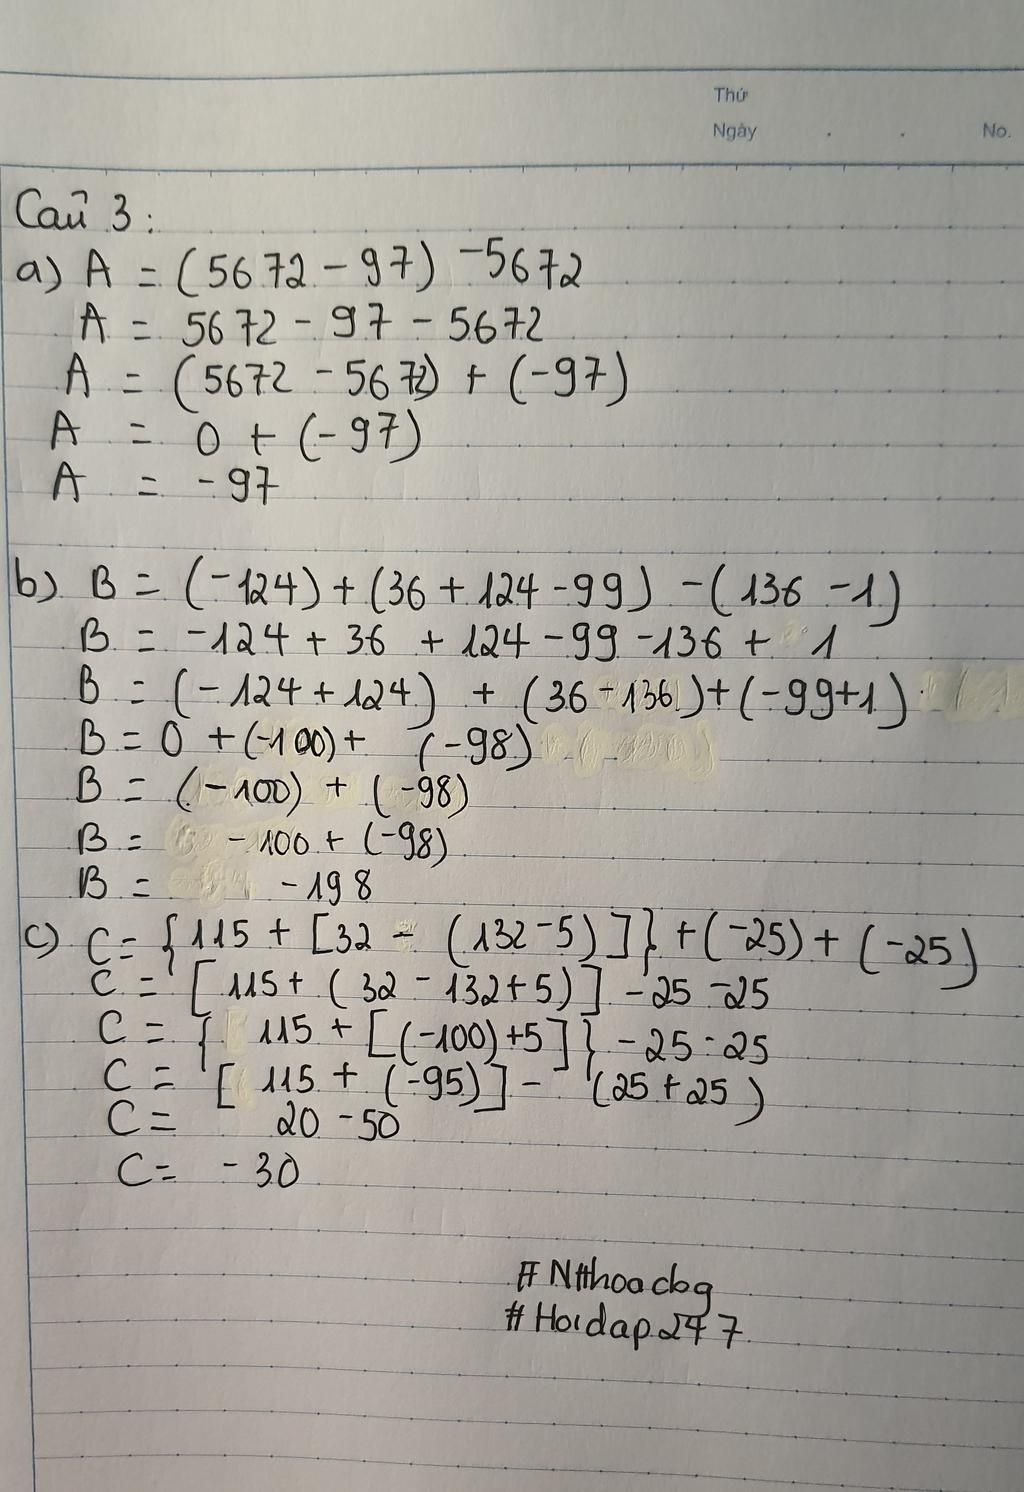 Thứ
Ngày . . No.
Câu 3:
a) A = (5672 - 97) - 5672
A = 5672 - 97 - 5672
A = (5672 - 5672) + (-97)
A = 0 + (-97)
A = -97
b) B = (-124) + (36 + 124 - 99) - (136 - 1)
B = -124 + 36 + 124 - 99 - 136 + 1
B = (-124 + 124) + (36 - 136) + (-99 + 1)
B = 0 + (-100) + (-98)
B = (-100) + (-98)
B = -100 + (-98)
B = -198
c) C = {115 + [32 - (132 - 5)]} + (-25) + (-25)
C = [115 + (32 - 132 + 5)] - 25 - 25
C = {115 + [(-100) + 5]} - 25 - 25
C = [115 + (-95)] - (25 + 25)
C = 20 - 50
C = -30
#Ntthoacbg
#Hoidap247